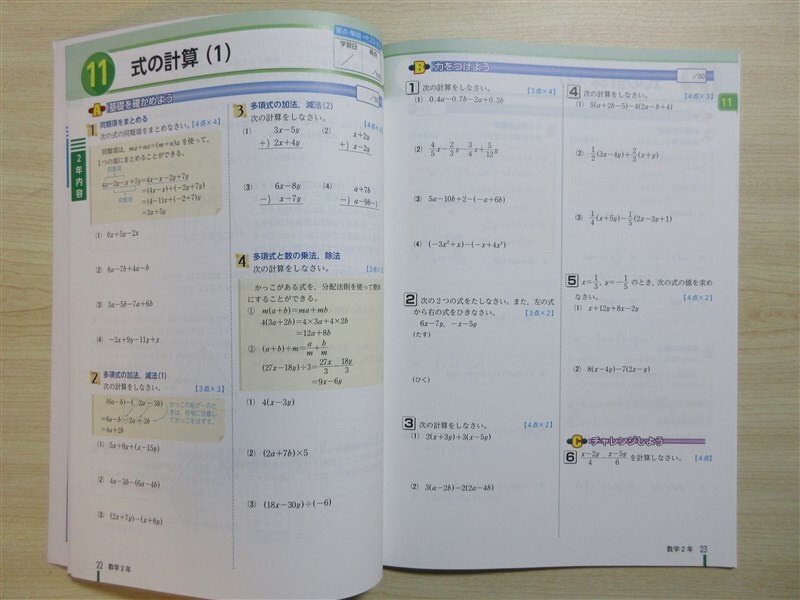 11 式の計算 (1)
学習日
得点
A 基礎を確かめよう
/50
1 同類項をまとめる
次の式の同類項をまとめなさい。【4点×4】
同類項は、ma+na=(m+n)a を使って、
1つの項にまとめることができる。
同類項
4x-2y-x+7y=4x-x-2y+7y
=(4x-x)+(-2y+7y)
同類項
=(4-1)x+(-2+7)y
=3x+5y
(1) 6x+5y-2x
(2) 8a-7b+4a-b
(3) 3a-5b-7a+6b
(4) -3x+9y-11y+x
2 多項式の加法，減法(1)
次の計算をしなさい。【3点×3】
(6a-b)-(2a-3b)
=6a-b-2a+3b
=4a+2b
かっこの前が-のと
きは、符号に注意し
てかっこをはずす。
(1) 5x+8y+(x-15y)
(2) 4a-3b-(6a-4b)
(3) (2x+7y)-(x+6y)
2年内容
3 多項式の加法，減法(2)
次の計算をしなさい。
(1) 3x-5y
+) 2x+4y
(2) x+2y
+) x-2y
(3) 6x-8y
-) x-7y
(4) a+7b
-) a-9b-1
4 多項式と数の乗法，除法
次の計算をしなさい。
かっこがある式を、分配法則を使って簡単
にすることができる。
① m(a+b)=ma+mb
4(3a+2b)=4×3a+4×2b
=12a+8b
② (a+b)÷m=a/m+b/m
(27x-18y)÷3=27x/3-18y/3
=9x-6y
(1) 4(x-3y)
(2) (2a+7b)×5
(3) (18x-30y)÷(-6)
22 数学2年
B 力をつけよう
/50
1 次の計算をしなさい。【3点×4】
(1) 0.4a-0.7b-2a+0.3b
(2) 4/5x-2/3y-3/4x+5/12y
(3) 5a-10b+2-(-a+6b)
(4) (-3x²+x)-(-x+4x²)
2 次の2つの式をたしなさい。また、左の式
から右の式をひきなさい。【3点×2】
6x-7y，-x-5y
(たす)
(ひく)
3 次の計算をしなさい。【4点×2】
(1) 2(x+3y)+3(x-5y)
(2) 3(a-2b)-2(2a-4b)
4 次の計算をしなさい。【4点×3】
(1) 5(a+2b-5)-4(2a-b+4)
(2) 1/2(3x-4y)+2/3(x+y)
(3) 1/4(x+5y)-1/5(2x-3y+1)
5 x=1/3，y=-1/5 のとき、次の式の値を求め
なさい。【4点×2】
(1) x+12y+8x-2y
(2) 8(x-4y)-7(2x-y)
C チャレンジしよう
6 x-2y/4-x-5y/6 を計算しなさい。【4点】
11
数学2年 23